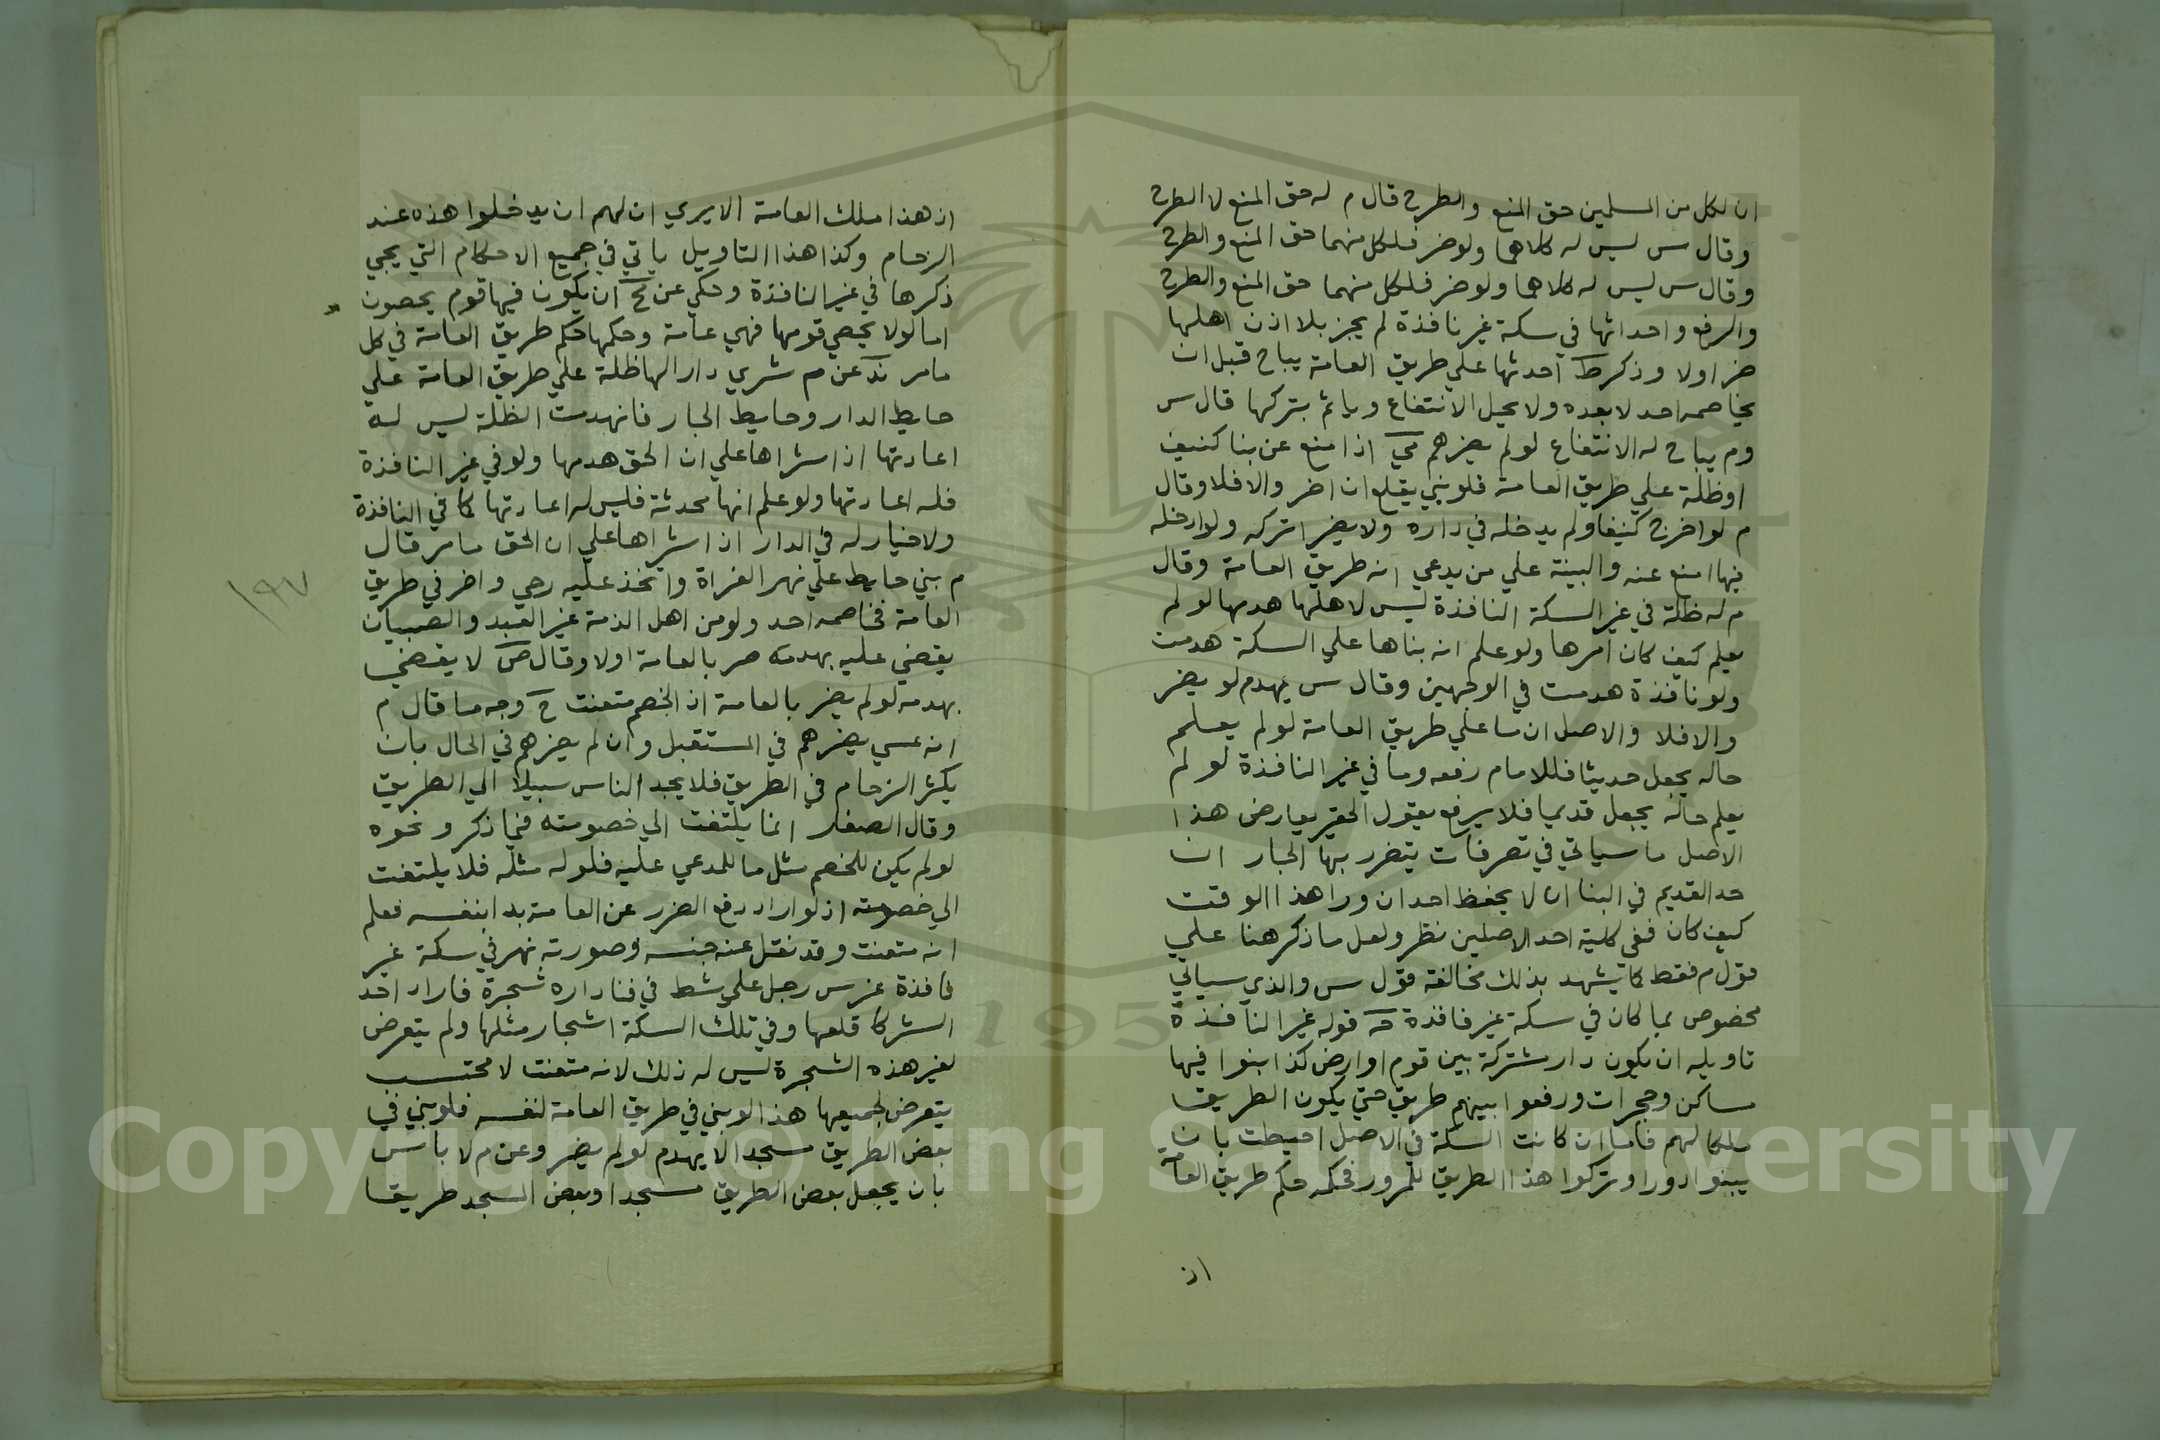 ان لكل من المسلمين حق المنع والطرح قال م له حق المنع لا الطرح
وقال س ليس له كلاهما ولو ضر فلكل منهما حق المنع والطرح
وقال س ليس له كلاهما ولو ضر فلكل منهما حق المنع والطرح
والرفع واحداثها في سكة غير نافذة لم يجز بلا اذن اهلها
ضر اولا وذكر ط احدثها علي طريق العامة يباح قبل ان
يخاصمه احد لا بعده ولا يحل الانتفاع وياثم بتركها قال س
وم يباح له الانتفاع لو لم يضرهم اذا منع عن بنا كنيف
او ظلة علي طريق العامة فلو بني يقلع ان اضر والا فلا وقال
م لو اخرج كنيفا ولم يدخله في داره ولا يضر اتركه ولو ادخله
فيها امنع عنه والبينة علي من يدعي انه طريق العامة وقال
م له ظلة في غير السكة النافذة ليس لاهلها هدمها لو لم
يعلم كيف كان امرها ولو علم انه بناها علي السكة هدمت
ولو نافذة هدمت في الوجهين وقال س يهدم لو يضر
والا فلا والاصل ان ما علي طريق العامة لو لم يعلم
حاله يجعل حديثا فللامام رفعه وما في غير النافذة لو لم
يعلم حاله يجعل قديما فلا يرفع يقول الحقير يعارض هذا
الاصل ما سياتي في تصرفات يتضرر بها الجار ان
حد القديم في البنا ان لا يحفظ احد ان ورا هذا الوقت
كيف كان ففي كلية احد الاصلين نظر ولعل ما ذكر هنا علي
قول م فقط كما يشهد بذلك مخالفة قول س والذي سياتي
مخصوص بما كان في سكة غير نافذة قوله غير النافذة
تاويله ان يكون دار مشتركة بين قوم او ارض كذا بنوا فيها
مساكن وحجرات ورفعوا بينهم طريق حتي يكون الطريق
ملكا لهم فاما ان كانت السكة في الاصل احيطت بان
يبنوا دورا وتركوا هذا الطريق للمرور فحكمه حكم طريق العامة
اذ
اذ هذا ملك العامة الا يري ان لهم ان يدخلوا هذه عند
الزحام وكذا هذا التاويل ياتي في جميع الاحكام التي يجي
ذكرها في غير النافذة وحكي عن ان يكون فيها قوم يحصون
اما لو لا يحصي قومها فهي عامة وحكمها حكم طريق العامة في كل
مامر عن م شري دارا لها ظلة علي طريق العامة علي
حايط الدار وحايط الجار فانهدمت الظلة ليس له
اعادتها اذا شراها علي ان الحق هدمها ولو في غير النافذة
فله اعادتها ولو علم انها محدثة فليس له اعادتها كما في النافذة
ولا خيار له في الدار اذا شراها علي ان الحق مامر قال
م بني حايط علي نهر الفراة واتخذ عليه رحي واضر في طريق
العامة فخاصمه احد ولو من اهل الذمة غير العبد والصبيان
يقضي عليه بهدمه ضر بالعامة اولا وقال ص لا يقضي
بهدمه لو لم يضر بالعامة اذ الخصم متعنت ح وجه ما قال م
انه عسي يضرهم في المستقبل وان لم يضرهم في الحال بان
يكثر الزحام في الطريق فلا يجد الناس سبيلا الي الطريق
وقال الصفار انما يلتفت الي خصومته فيما ذكر ونحوه
لو لم يكن للخصم مثل ما للمدعي عليه فلو له مثله فلا يلتفت
الي خصومته اذ لو اراد دفع الضرر عن العامة بدا بنفسه فعلم
انه متعنت وقد نقل عنه جنسه وصورته نهر في سكة غير
نافذة غرس رجل علي شط في فنا داره شجرة فاراد احد
الشركا قلعها وفي تلك السكة اشجار مثلها ولم يتعرض
لغير هذه الشجرة ليس له ذلك لانه متعنت لا محتسب
يتعرض لجميعها هذا لو بني في طريق العامة لنفسه فلو بني في
بعض الطريق مسجدا لا يهدم لو لم يضر وعن م لا باس
بان يجعل بعض الطريق مسجدا وبعض المسجد طريقا
١٩٧
1957
Copyright © King Saud University